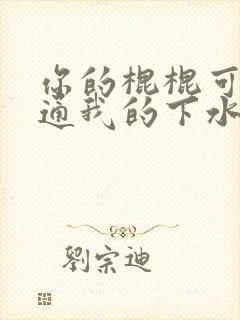 你的棍棍可
通我的下水
劉宗迪